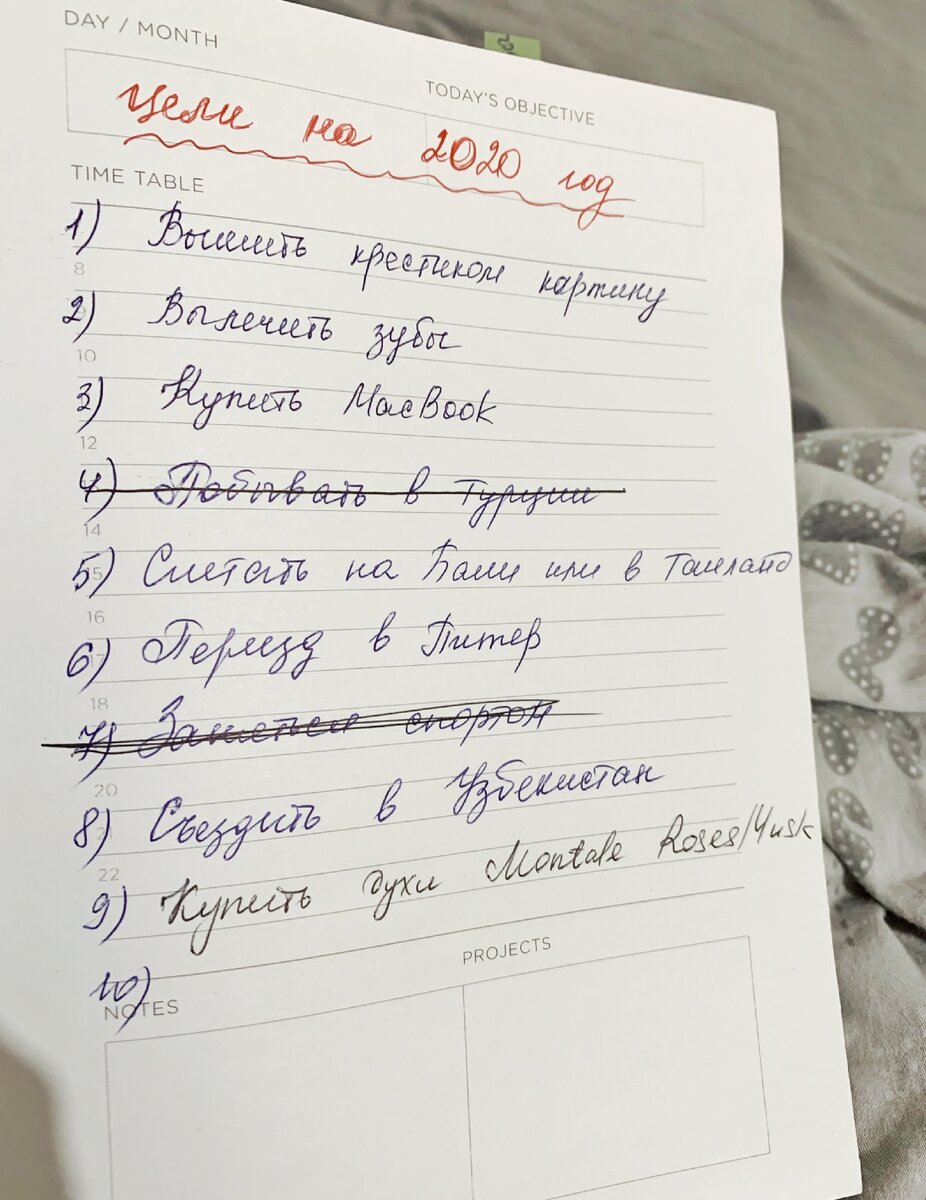 DAY / MONTH
TODAY'S OBJECTIVE
Цели на 2020 год
TIME TABLE
1) Вышить крестиком картину
8
2) Вылечить зубы
10
3) Купить MacBook
12
4) Побывать в Турции
14
5) Слетать на Бали или в Таиланд
16
6) Переезд в Питер
18
7) Заняться спортом
20
8) Съездить в Узбекистан
22
9) Купить духи Montale Roses Musk
10)
NOTES
PROJECTS